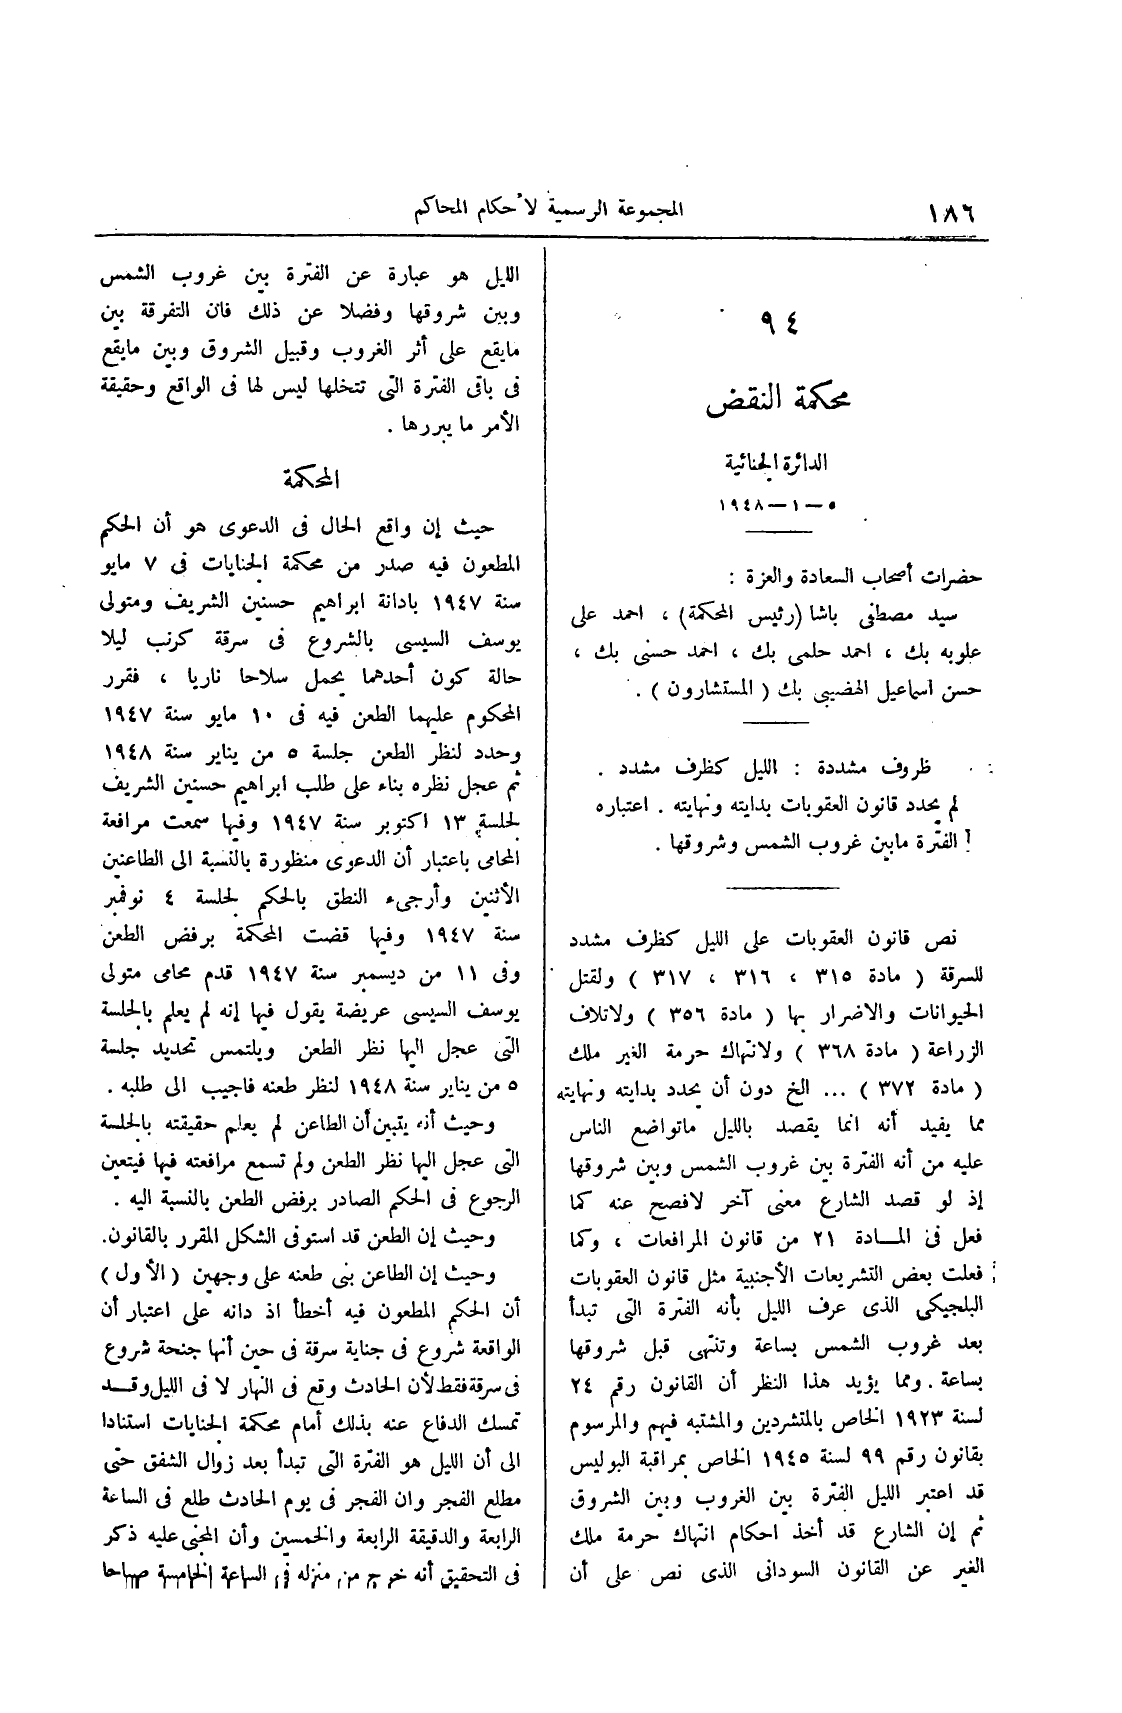 ١٨٦
المجموعة الرسمية لأحكام المحاكم
٩٤
محكمة النقض
الدائرة الجنائية
٥ — ١ — ١٩٤٨
حضرات أصحاب السعادة والعزة :
سيد مصطفى باشا (رئيس المحكمة) ، احمد على
علوبه بك ، احمد حلمى بك ، احمد حسنى بك ،
حسن اسماعيل الهضيبى بك ( المستشارون ) .
ظروف مشددة : الليل كظرف مشدد .
لم يحدد قانون العقوبات بدايته ونهايته . اعتباره
الفترة مابين غروب الشمس وشروقها .
نص قانون العقوبات على الليل كظرف مشدد
للسرقة ( مادة ٣١٥ ، ٣١٦ ، ٣١٧ ) ولقتل
الحيوانات والاضرار بها ( مادة ٣٥٦ ) ولاتلاف
الزراعة ( مادة ٣٦٨ ) ولانتهاك حرمة الغير ملك
( مادة ٣٧٢ ) ... الخ دون أن يحدد بدايته ونهايته
مما يفيد أنه انما يقصد بالليل ماتواضع الناس
عليه من أنه الفترة بين غروب الشمس وبين شروقها
إذ لو قصد الشارع معنى آخر لافصح عنه كما
فعل فى المـــادة ٢١ من قانون المرافعات ، وكما
فعلت بعض التشريعات الأجنبية مثل قانون العقوبات
البلجيكى الذى عرف الليل بأنه الفترة التى تبدأ
بعد غروب الشمس بساعة وتنتهى قبل شروقها
بساعة . ومما يؤيد هذا النظر أن القانون رقم ٢٤
لسنة ١٩٢٣ الخاص بالمتشردين والمشتبه فيهم والمرسوم
بقانون رقم ٩٩ لسنة ١٩٤٥ الخاص بمراقبة البوليس
قد اعتبر الليل الفترة بين الغروب وبين الشروق
ثم إن الشارع قد أخذ احكام انتهاك حرمة ملك
الغير عن القانون السودانى الذى نص على أن
الليل هو عبارة عن الفترة بين غروب الشمس
وبين شروقها وفضلا عن ذلك فان التفرقة بين
مايقع على أثر الغروب وقبيل الشروق وبين مايقع
فى باقى الفترة التى تتخلها ليس لها فى الواقع وحقيقة
الأمر ما يبررها .
المحكمة
حيث إن واقع الحال فى الدعوى هو أن الحكم
المطعون فيه صدر من محكمة الجنايات فى ٧ مايو
سنة ١٩٤٧ بادانة ابراهيم حسنين الشريف ومتولى
يوسف السيسى بالشروع فى سرقة كرنب ليلا
حالة كون أحدهما يحمل سلاحا ناريا ، فقرر
المحكوم عليهما الطعن فيه فى ١٠ مايو سنة ١٩٤٧
وحدد لنظر الطعن جلسة ٥ من يناير سنة ١٩٤٨
ثم عجل نظره بناء على طلب ابراهيم حسنين الشريف
لجلسة ١٣ اكتوبر سنة ١٩٤٧ وفيها سمعت مرافعة
المحامى باعتبار أن الدعوى منظورة بالنسبة الى الطاعنين
الأثنين وأرجىء النطق بالحكم لجلسة ٤ نوفمبر
سنة ١٩٤٧ وفيها قضت المحكمة برفض الطعن
وفى ١١ من ديسمبر سنة ١٩٤٧ قدم محامى متولى
يوسف السيسى عريضة يقول فيها إنه لم يعلم بالجلسة
التى عجل اليها نظر الطعن ويلتمس تحديد جلسة
٥ من يناير سنة ١٩٤٨ لنظر طعنه فاجيب الى طلبه .
وحيث أنه يتبين أن الطاعن لم يعلم حقيقته بالجلسة
التى عجل اليها نظر الطعن ولم تسمع مرافعته فيها فيتعين
الرجوع فى الحكم الصادر برفض الطعن بالنسبة اليه .
وحيث إن الطعن قد استوفى الشكل المقرر بالقانون.
وحيث إن الطاعن بنى طعنه على وجهين (الأول)
أن الحكم المطعون فيه أخطأ اذ دانه على اعتبار أن
الواقعة شروع فى جناية سرقة فى حين أنها جنحة شروع
فى سرقة فقط لأن الحادث وقع فى النهار لا فى الليل وقـــد
تمسك الدفاع عنه بذلك أمام محكمة الجنايات استنادا
الى أن الليل هو الفترة التى تبدأ بعد زوال الشفق حتى
مطلع الفجر وان الفجر فى يوم الحادث طلع فى الساعة
الرابعة والدقيقة الرابعة والخمسين وأن المجنى عليه ذكر
فى التحقيق أنه خرج من منزله فى الساعة الخامسة صباحا